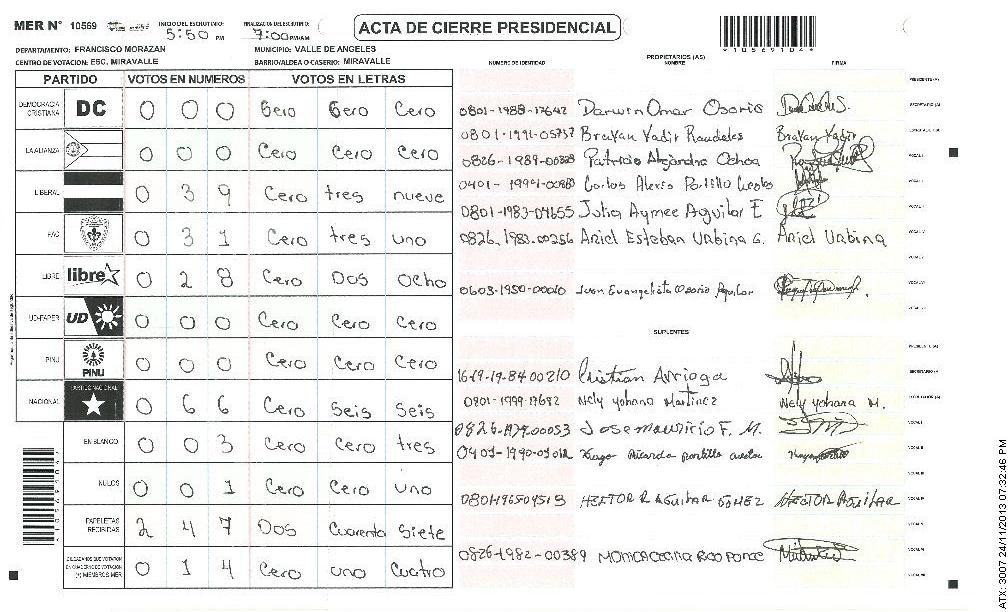 MER N° 10569
INICIO DEL ESCRUTINIO: 5:50 PM
FINALIZACION DEL ESCRUTINIO: 7:00 PM/AM
ACTA DE CIERRE PRESIDENCIAL
*10569104*
DEPARTAMENTO: FRANCISCO MORAZAN
MUNICIPIO: VALLE DE ANGELES
CENTRO DE VOTACION: ESC. MIRAVALLE
BARRIO/ALDEA O CASERIO: MIRAVALLE
PARTIDO VOTOS EN NUMEROS VOTOS EN LETRAS
DEMOCRACIA CRISTIANA DC 0 0 0 Cero Cero Cero
LA ALIANZA 0 0 0 Cero Cero Cero
LIBERAL 0 3 9 Cero tres nueve
PAC 0 3 1 Cero tres uno
LIBRE libre 0 2 8 Cero Dos Ocho
UD-FAPER UD 0 0 0 Cero Cero Cero
PINU PINU 0 0 0 Cero Cero Cero
NACIONAL PARTIDO NACIONAL 0 6 6 Cero Seis Seis
EN BLANCO 0 0 3 Cero Cero tres
NULOS 0 0 1 Cero Cero uno
PAPELETAS RECIBIDAS 2 4 7 Dos Cuarenta Siete
CIUDADANOS QUE VOTARON EN CUADERNO DE VOTACION (+) MIEMBROS MER 0 1 4 Cero uno Cuatro
PROPIETARIOS (AS)
NUMERO DE IDENTIDAD NOMBRE FIRMA
PRESIDENTE (A)
0801-1988-17642 Darwin Omar Osorio SECRETARIO (A)
0801-1991-05757 Brayan Yadir Raudales Brayan Yadir
Patricia Alejandra Ochoa VOCAL I
Carlos Alexis Portillo
0801-1983-04655 Julia Aymee Aguilar E
0826-1983-00256 Ariel Esteban Urbina G. Ariel Urbina
0603-1950-00010 Juan Evangelista Osorio Aguilar
SUPLENTES
PRESIDENTE (A)
1619-1984 00210 Cristian Arriaga SECRETARIO (A)
0801-1999-17692 Nely Yohana Martinez Nely Yohana M.
0826-1979-00053 Jose Mauricio F. M.
Ricardo portillo
0801196504513 HECTOR R AGUILAR GOMEZ HECTOR AGUILAR
0826-1982-00389 PONCE
ATX: 3007 24/11/2013 07:32:46 PM